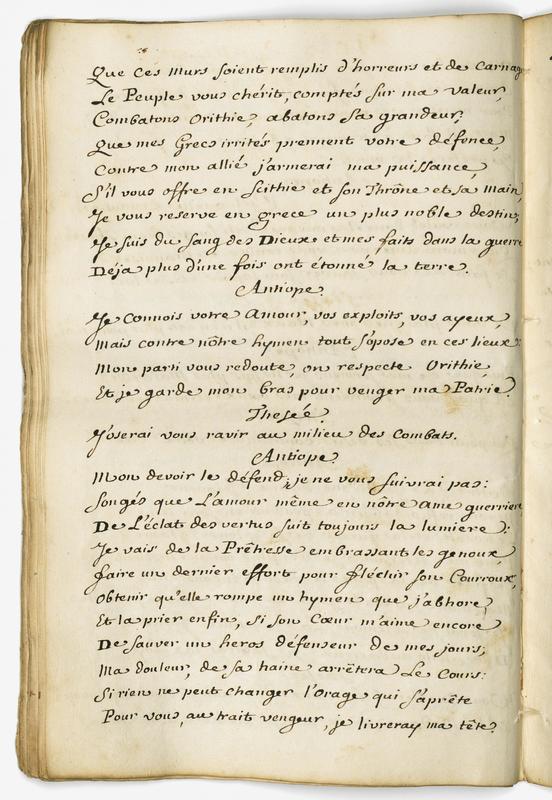 Que ces murs soient remplis d'horreurs et de carnage
Le Peuple vous chérit, comptés sur ma valeur,
Combatons Orithie, abatons sa grandeur;
Que mes Grecs irrités prennent votre défence,
Contre mon allié j'armerai ma puissance,
S'il vous offre en Scithie et son Thrône et sa main,
Je vous reserve en grece un plus noble destin;
Je suis du sang des Dieux et mes faits dans la guerre
Déja plus d'une fois ont étonné la terre.
Antiope.
Je connois votre amour, vos exploits, vos ayeux,
Mais contre nôtre hymen tout s'opose en ces lieux:
Mon parti vous redoute, on respecte Orithie,
Et je garde mon bras pour venger ma Patrie.
Thesée.
J'oserai vous ravir au milieu des combats.
Antiope.
Mon devoir le défend, je ne vous suivrai pas:
Songés que L'amour même en nôtre ame guerriere
De L'éclat des vertus suit toujours la lumiere:
Je vais de la Prêtresse embrassant les genoux,
faire un dernier effort pour fléchir son Courroux,
Obtenir qu'elle rompe un hymen que j'abhore,
Et la prier enfin, si son Cœur m'aime encore
De sauver un heros défenseur de mes jours;
Ma douleur, de sa haine arrêtera Le Cours:
Si rien ne peut changer l'Orage qui s'aprête
Pour vous, au trait vengeur, je livreray ma tête.